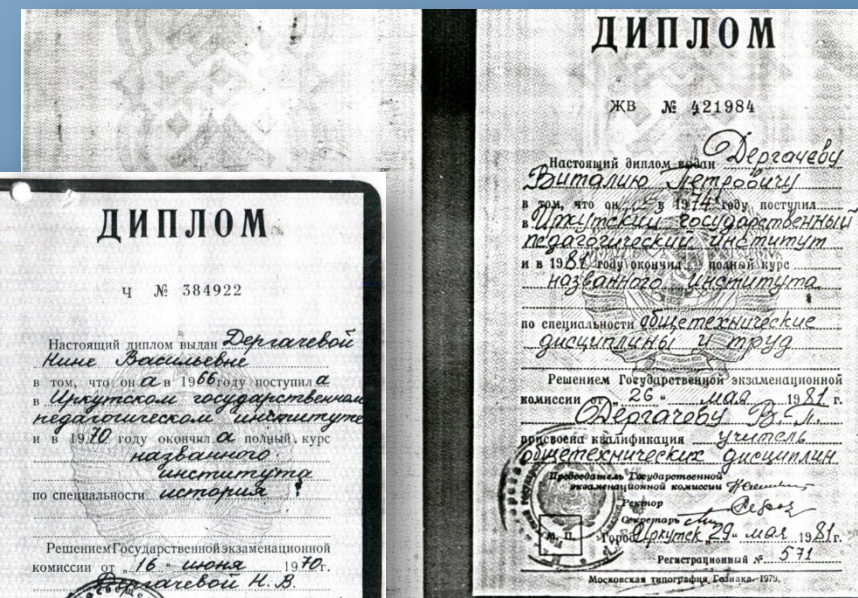 ДИПЛОМ
Ч № 384922
Настоящий диплом выдан Дергачевой
Нине Васильевне
в том, что он а в 1966 году поступил а
в Иркутском государственном
педагогическом институте
и в 1970 году окончил а полный курс
названного
института
по специальности история
Решением Государственной экзаменационной
комиссии от „16 " июня 1970г.
Дергачевой Н. В.
ДИПЛОМ
ЖВ № 421984
Настоящий диплом выдан Дергачеву
Виталию Петровичу
в том, что он в 1974 году поступил
в Иркутский государственный
педагогический институт
и в 1981 году окончил полный курс
названного института
по специальности общетехнические
дисциплины и труд
Решением Государственной экзаменационной
комиссии от „ 26 " мая 1981 г.
Дергачеву В. П.
присвоена квалификация учитель
общетехнических дисциплин
Председатель Государственной
экзаменационной комиссии
Ректор
Секретарь
М. П.
Город Иркутск 29 " мая 1981г.
Регистрационный № 571
Московская типография Гознака. 1979.